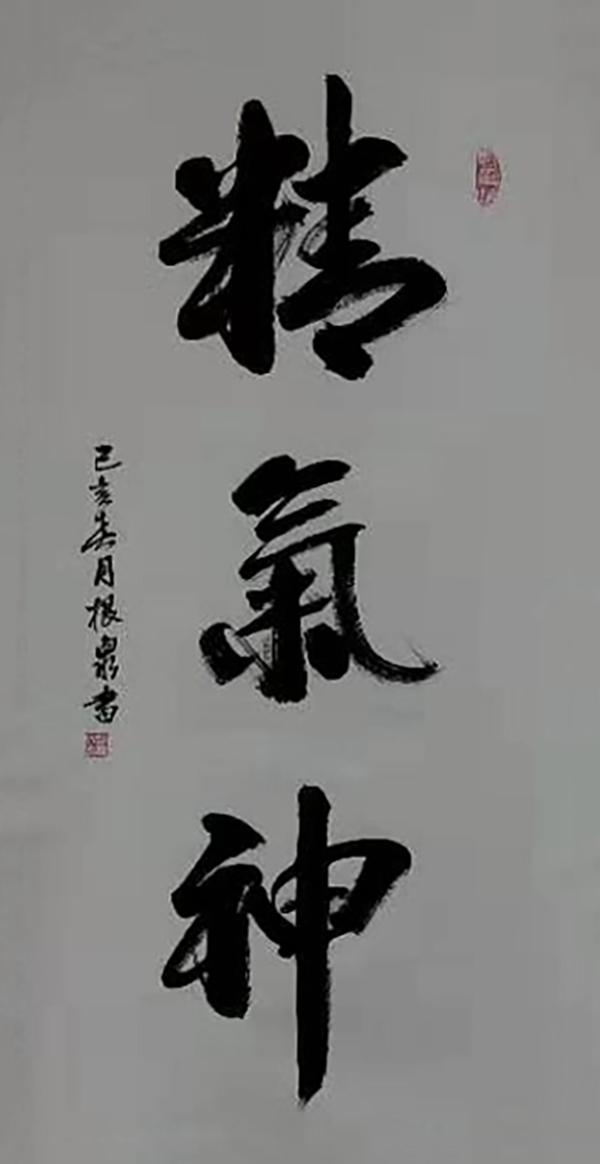 精氣神
己亥年月根泉書